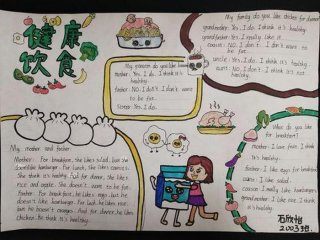 健康
饮食
My family do you like chicken for dinner
grandmother: Yes, I do. I think it's
healthy.
grandfather: Yes I really like it.
cousin: NO, I don't. I don't want to
be fat.
uncle: Yes, I do. I think it's
healthy.
aunt: NO. I don't. I think it's not
healthy.
My parents do you like
Mother: Yes, I do. I think it's
healthy.
father: NO. I don't. I don't want
to be fat.
Sister: Yes, I do.
My mother and father
Mother: For breakfast, she likes salad, but she
doesn't like hamburger. For lunch, she likes carrots.
She thinks it's healthy. For dinner, she likes
rice and apple. She doesn't want to be fat.
Father: For breakfast, he likes eggs but he
doesn't like hamburger. For lunch he likes rice,
but he doesn't oranges. And for dinner, he likes
chicken. He think it's healthy.
What do you like
for breakfast?
Mother: I love fruit. I think
it's healthy.
Father: I like eggs for breakfast
I like salad.
cousin: I really like hamburger.
grandmother: I like rice. I think
it's healthy.
石欣怡
2003班